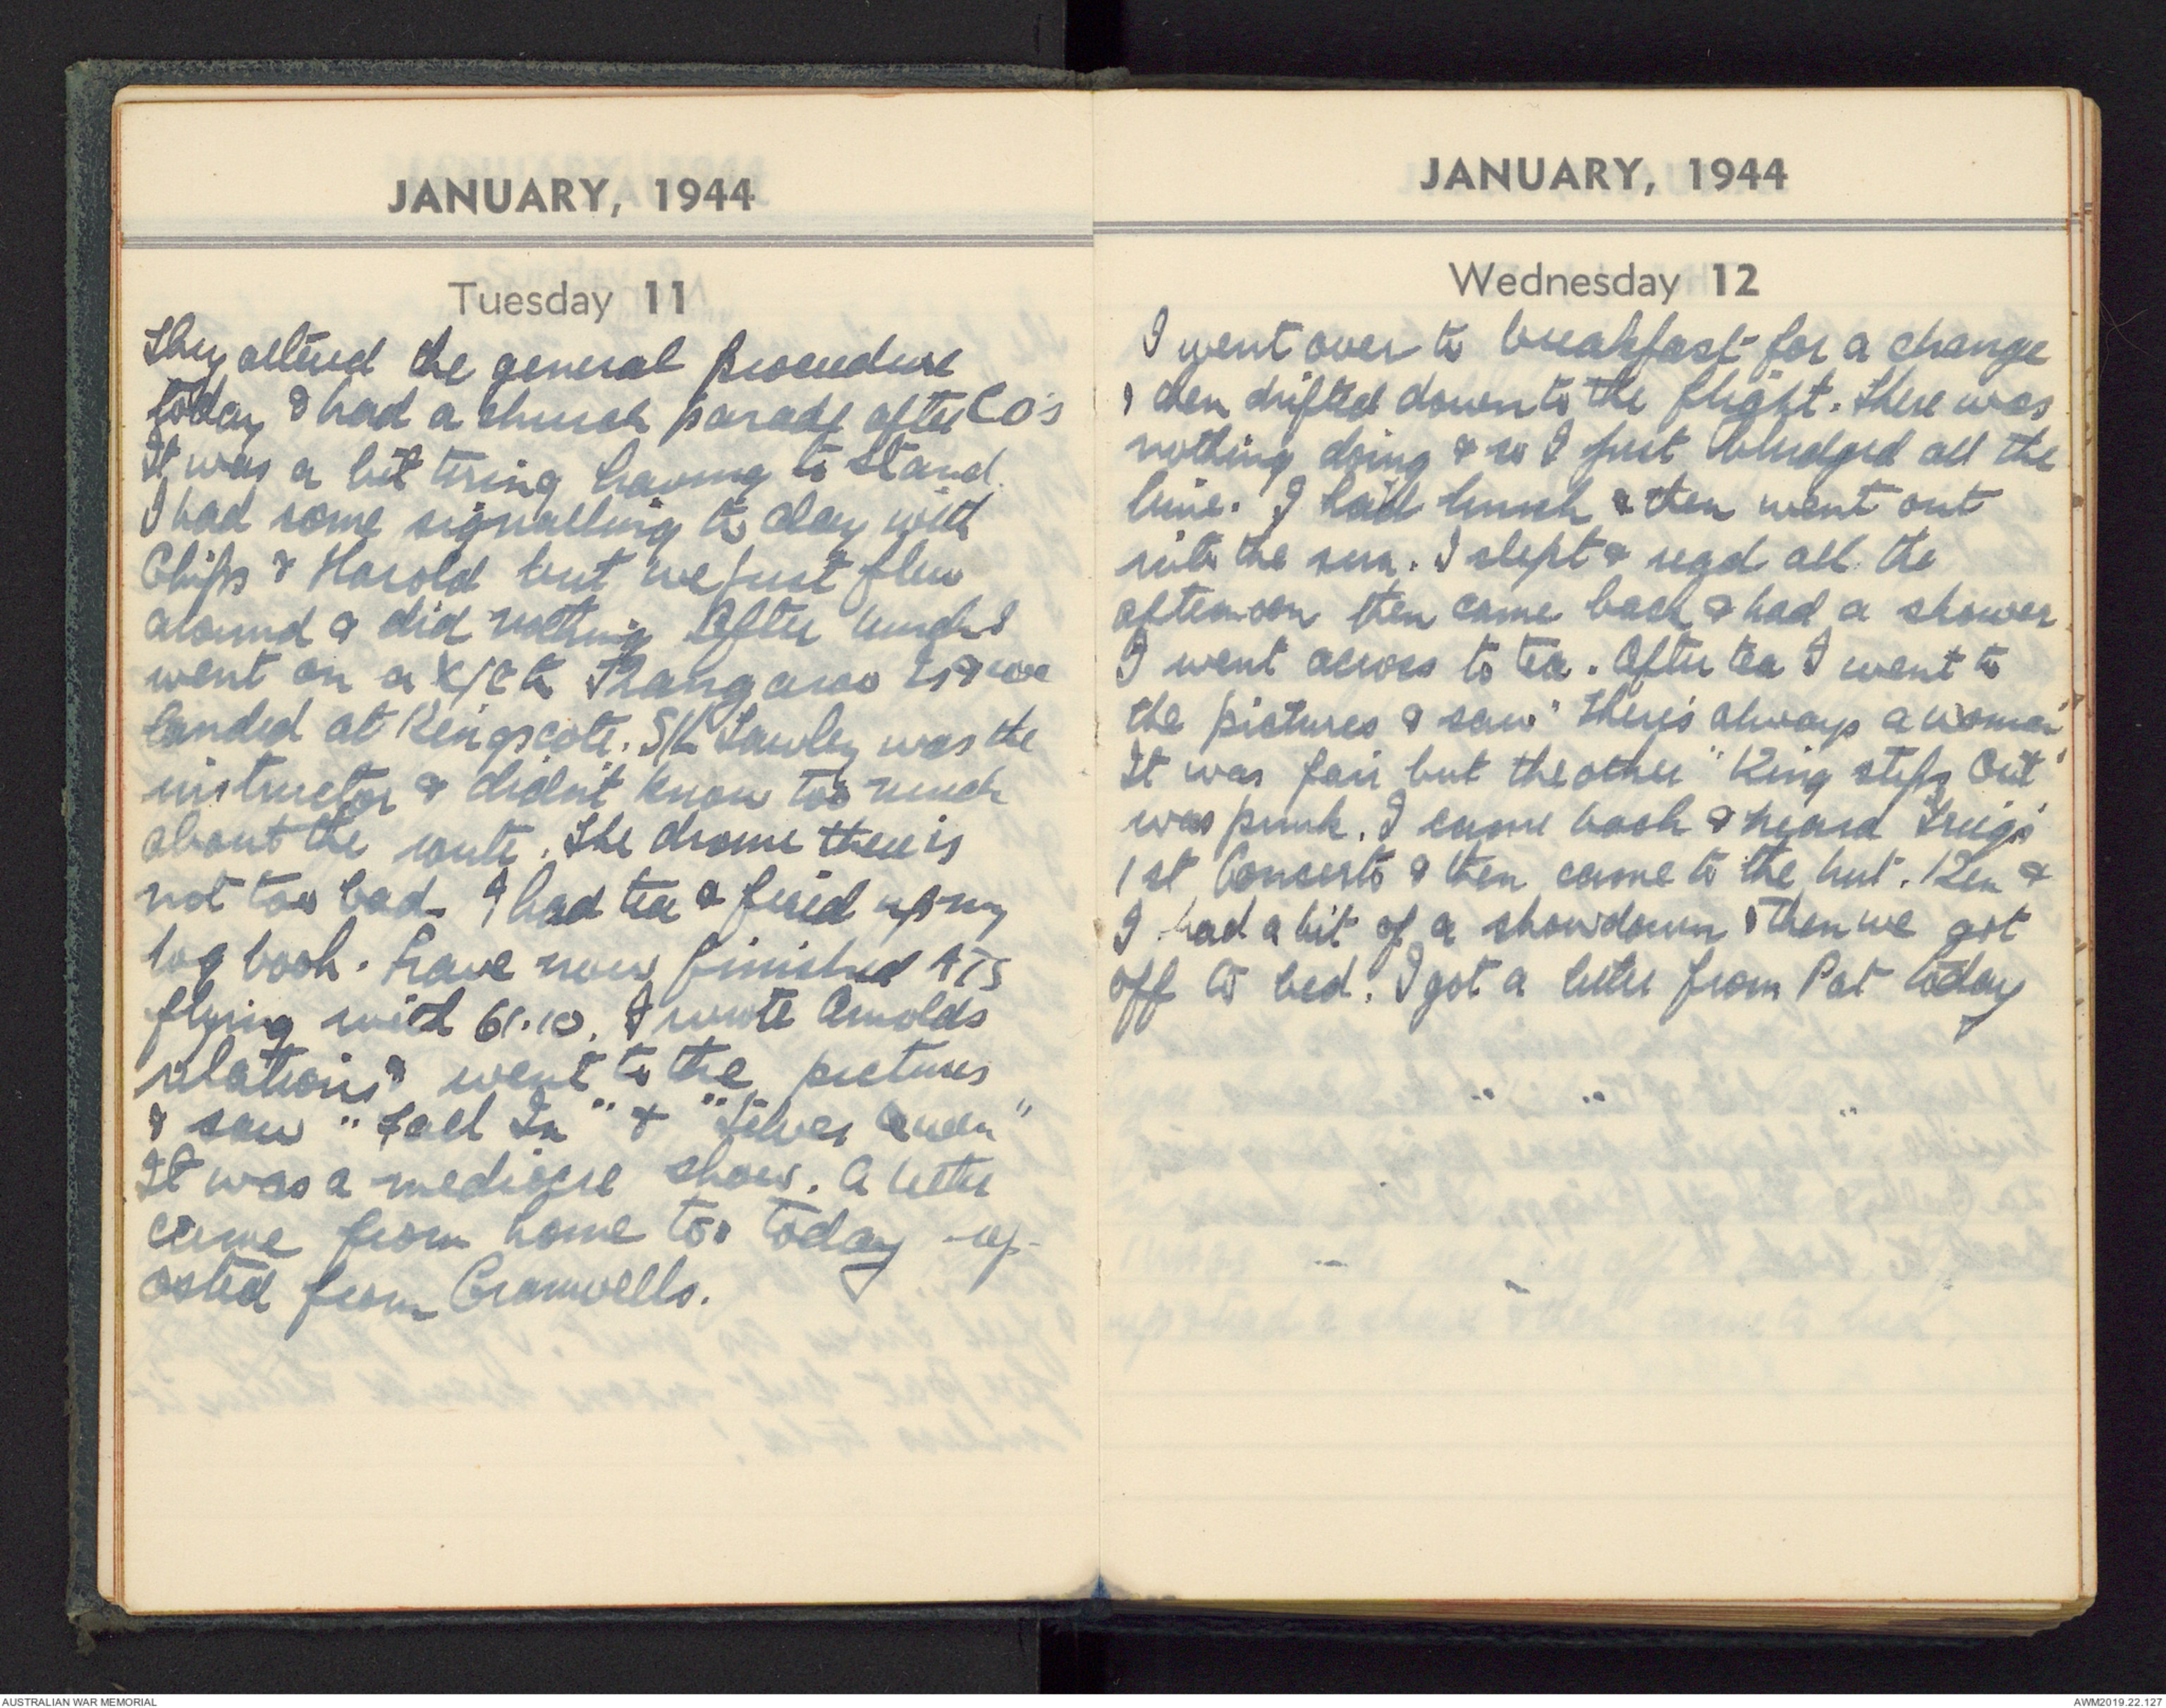 JANUARY, 1944
Tuesday 11
They altered the general procedure
today & had a church parade after CO's
It was a bit tiring having to stand.
I had some signalling to day with
Chips & Harold but we just flew
around & did nothing After lunch I
went on a X/C to Kangaroo Is & we
landed at Kingscote. S/L Lawley was the
instructor & didn't know too much
about the route. The drome there is
not too bad. I had tea & fixed up my
log book. Have now finished ATS
flying with 61.10. I wrote Arnolds
relations & went to the pictures
& saw "Fall In" & "Silver Queen"
It was a mediocre show. A letter
came from home too today -up-
osted from Cromwells.
JANUARY, 1944
Wednesday 12
I went over to breakfast for a change
& then drifted down to the flight. There was
nothing doing & so I just bludged all the
time. I had lunch & then went out
into the sun. I slept & read all the
afternoon then came back & had a shower
I went across to tea. After tea I went to
the pictures & saw "There's always a woman"
It was fair but the other "King steps Out"
was punk. I came back & heard Grieg's
1st Concerto & then came to the hut. Ken &
I had a bit of a showdown & then we got
off to bed. I got a letter from Pat today
AUSTRALIAN WAR MEMORIAL
AWM2019.22.127